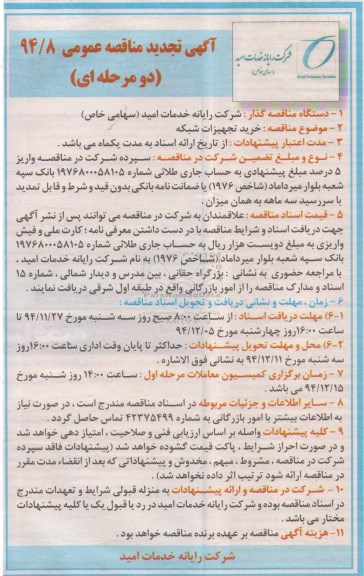 آگهی تجدید مناقصه عمومی ۹۴/۸
(دو مرحله ای)
شرکت رایانه خدمات امید
(سهامی خاص)
۱ - دستگاه مناقصه گذار : شرکت رایانه خدمات امید (سهامی خاص)
۲ - موضوع مناقصه : خرید تجهیزات شبکه
۳ - مدت اعتبار پیشنهادات : از تاریخ ارائه اسناد به مدت یکماه می باشد .
۴ - نوع و مبلغ تضمین شرکت در مناقصه : سپرده شرکت در مناقصه واریز
۵ درصد مبلغ پیشنهادی به حساب جاری طلائی شماره ۱۹۷۶۸۰۰۰۵۸۱۰۵ بانک سپه
شعبه بلوار میرداماد (شاخص ۱۹۷۶) یا ضمانت نامه بانکی بدون قید و شرط و قابل تمدید
با سررسید سه ماهه به همان میزان .
۵ - قیمت اسناد مناقصه : علاقمندان به شرکت در مناقصه می توانند پس از نشر آگهی
جهت دریافت اسناد و شرایط مناقصه با در دست داشتن معرفی نامه : کارت ملی و فیش
واریزی به مبلغ دویست هزار ریال به حساب جاری طلائی شماره ۱۹۷۶۸۰۰۰۵۸۱۰۵
بانک سپه شعبه بلوار میرداماد (شاخص ۱۹۷۶) به نام شرکت رایانه خدمات امید ،
با مراجعه حضوری به نشانی : بزرگراه حقانی ، بین مدرس و دیدار شمالی ، شماره ۱۵
اسناد و مدارک مناقصه را از امور بازرگانی واقع در طبقه اول شرقی دریافت نمایند .
۶ - زمان ، مهلت و نشانی دریافت و تحویل اسناد مناقصه :
۶-۱) مهلت دریافت اسناد : از ساعت ۸:۰۰ صبح روز سه شنبه مورخ ۹۴/۱۱/۲۷ تا
ساعت ۱۶:۰۰ روز چهارشنبه مورخ ۹۴/۱۲/۰۵
۶-۲) محل و مهلت تحویل پیشنهادات : حداکثر تا پایان وقت اداری ساعت ۱۶:۰۰ روز
سه شنبه مورخ ۹۴/۱۲/۱۱ به نشانی فوق الاشاره .
۷ - زمان برگزاری کمیسیون معاملات مرحله اول : ساعت ۱۴:۰۰ روز شنبه مورخ
۹۴/۱۲/۱۵ می باشد .
۸ - سایر اطلاعات و جزئیات مربوطه در اسناد مناقصه مندرج است ، در صورت نیاز
به اطلاعات بیشتر با امور بازرگانی به شماره ۴۲۳۷۵۴۹۹ تماس حاصل گردد .
۹ - کلیه پیشنهادات واصله بر اساس ارزیابی فنی و صلاحیت ، امتیاز دهی خواهد شد
و در صورت احراز شرایط ، پاکت قیمت گشوده خواهد شد (پیشنهادات فاقد سپرده
شرکت در مناقصه ، مشروط ، مبهم ، مخدوش و پیشنهاداتی که بعد از انقضاء مدت مقرر
در مناقصه ارائه شود ترتیب اثر داده نخواهد شد) .
۱۰ - شرکت در مناقصه و ارائه پیشنهادات به منزله قبولی شرایط و تعهدات مندرج
در اسناد مناقصه بوده و شرکت رایانه خدمات امید در رد یا قبول یک یا کلیه پیشنهادات
مختار می باشد .
۱۱- هزینه آگهی مناقصه بر عهده برنده مناقصه خواهد بود .
شرکت رایانه خدمات امید